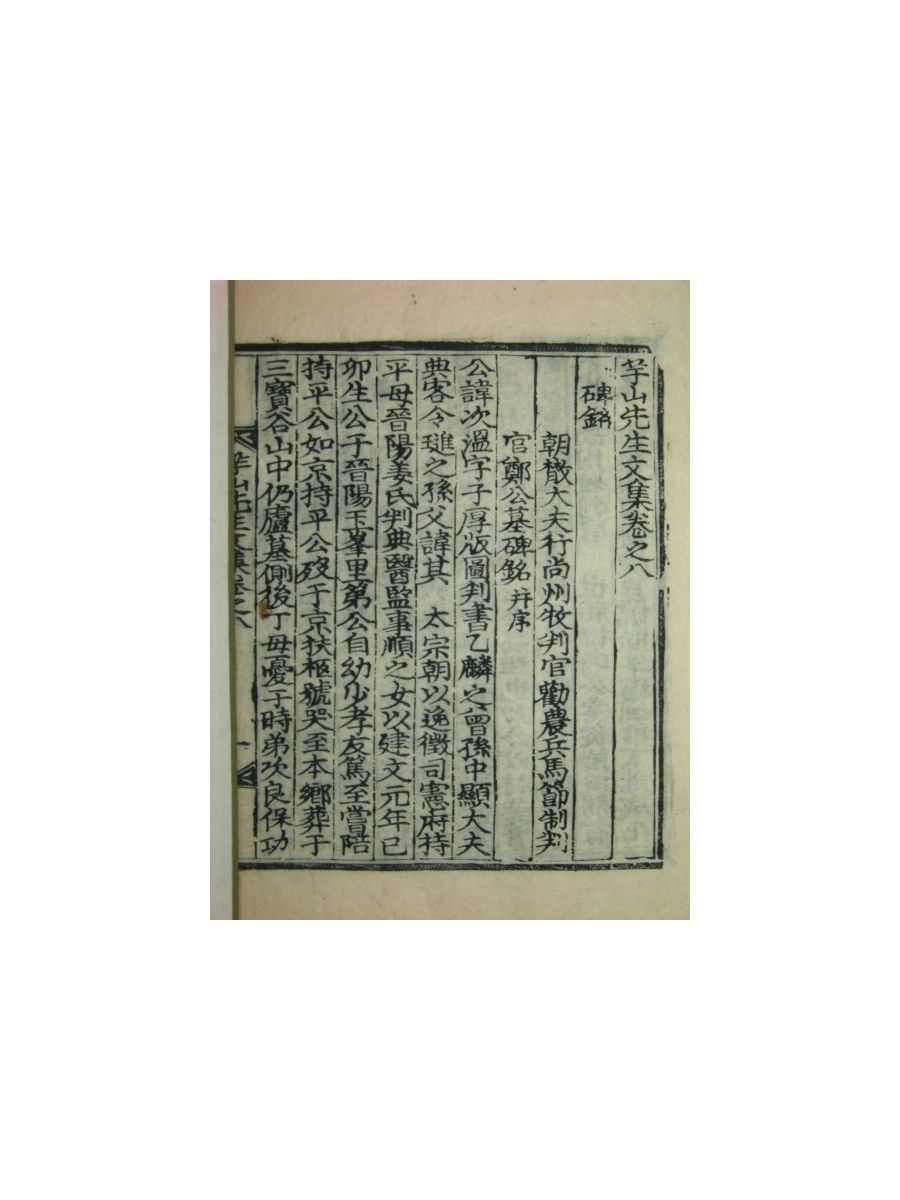 竽山先生文集卷之八
碑銘
朝散大夫行尚州牧判官勸農兵馬節制判
官鄭公墓碑銘 并序
公諱次溫字子厚版圖判書乙麟之曾孫中顯大夫
典客令璡之孫父諱其 太宗朝以逸徵司憲府持
平母晉陽姜氏判典醫監事順之女以建文元年己
卯生公于晉陽玉峯里第公自幼少孝友篤至嘗陪
持平公如京持平公歿于京扶柩號哭至本鄉葬于
三寶谷山中仍廬墓側後丁母憂于時弟次良保功
山先生文集卷之八 一